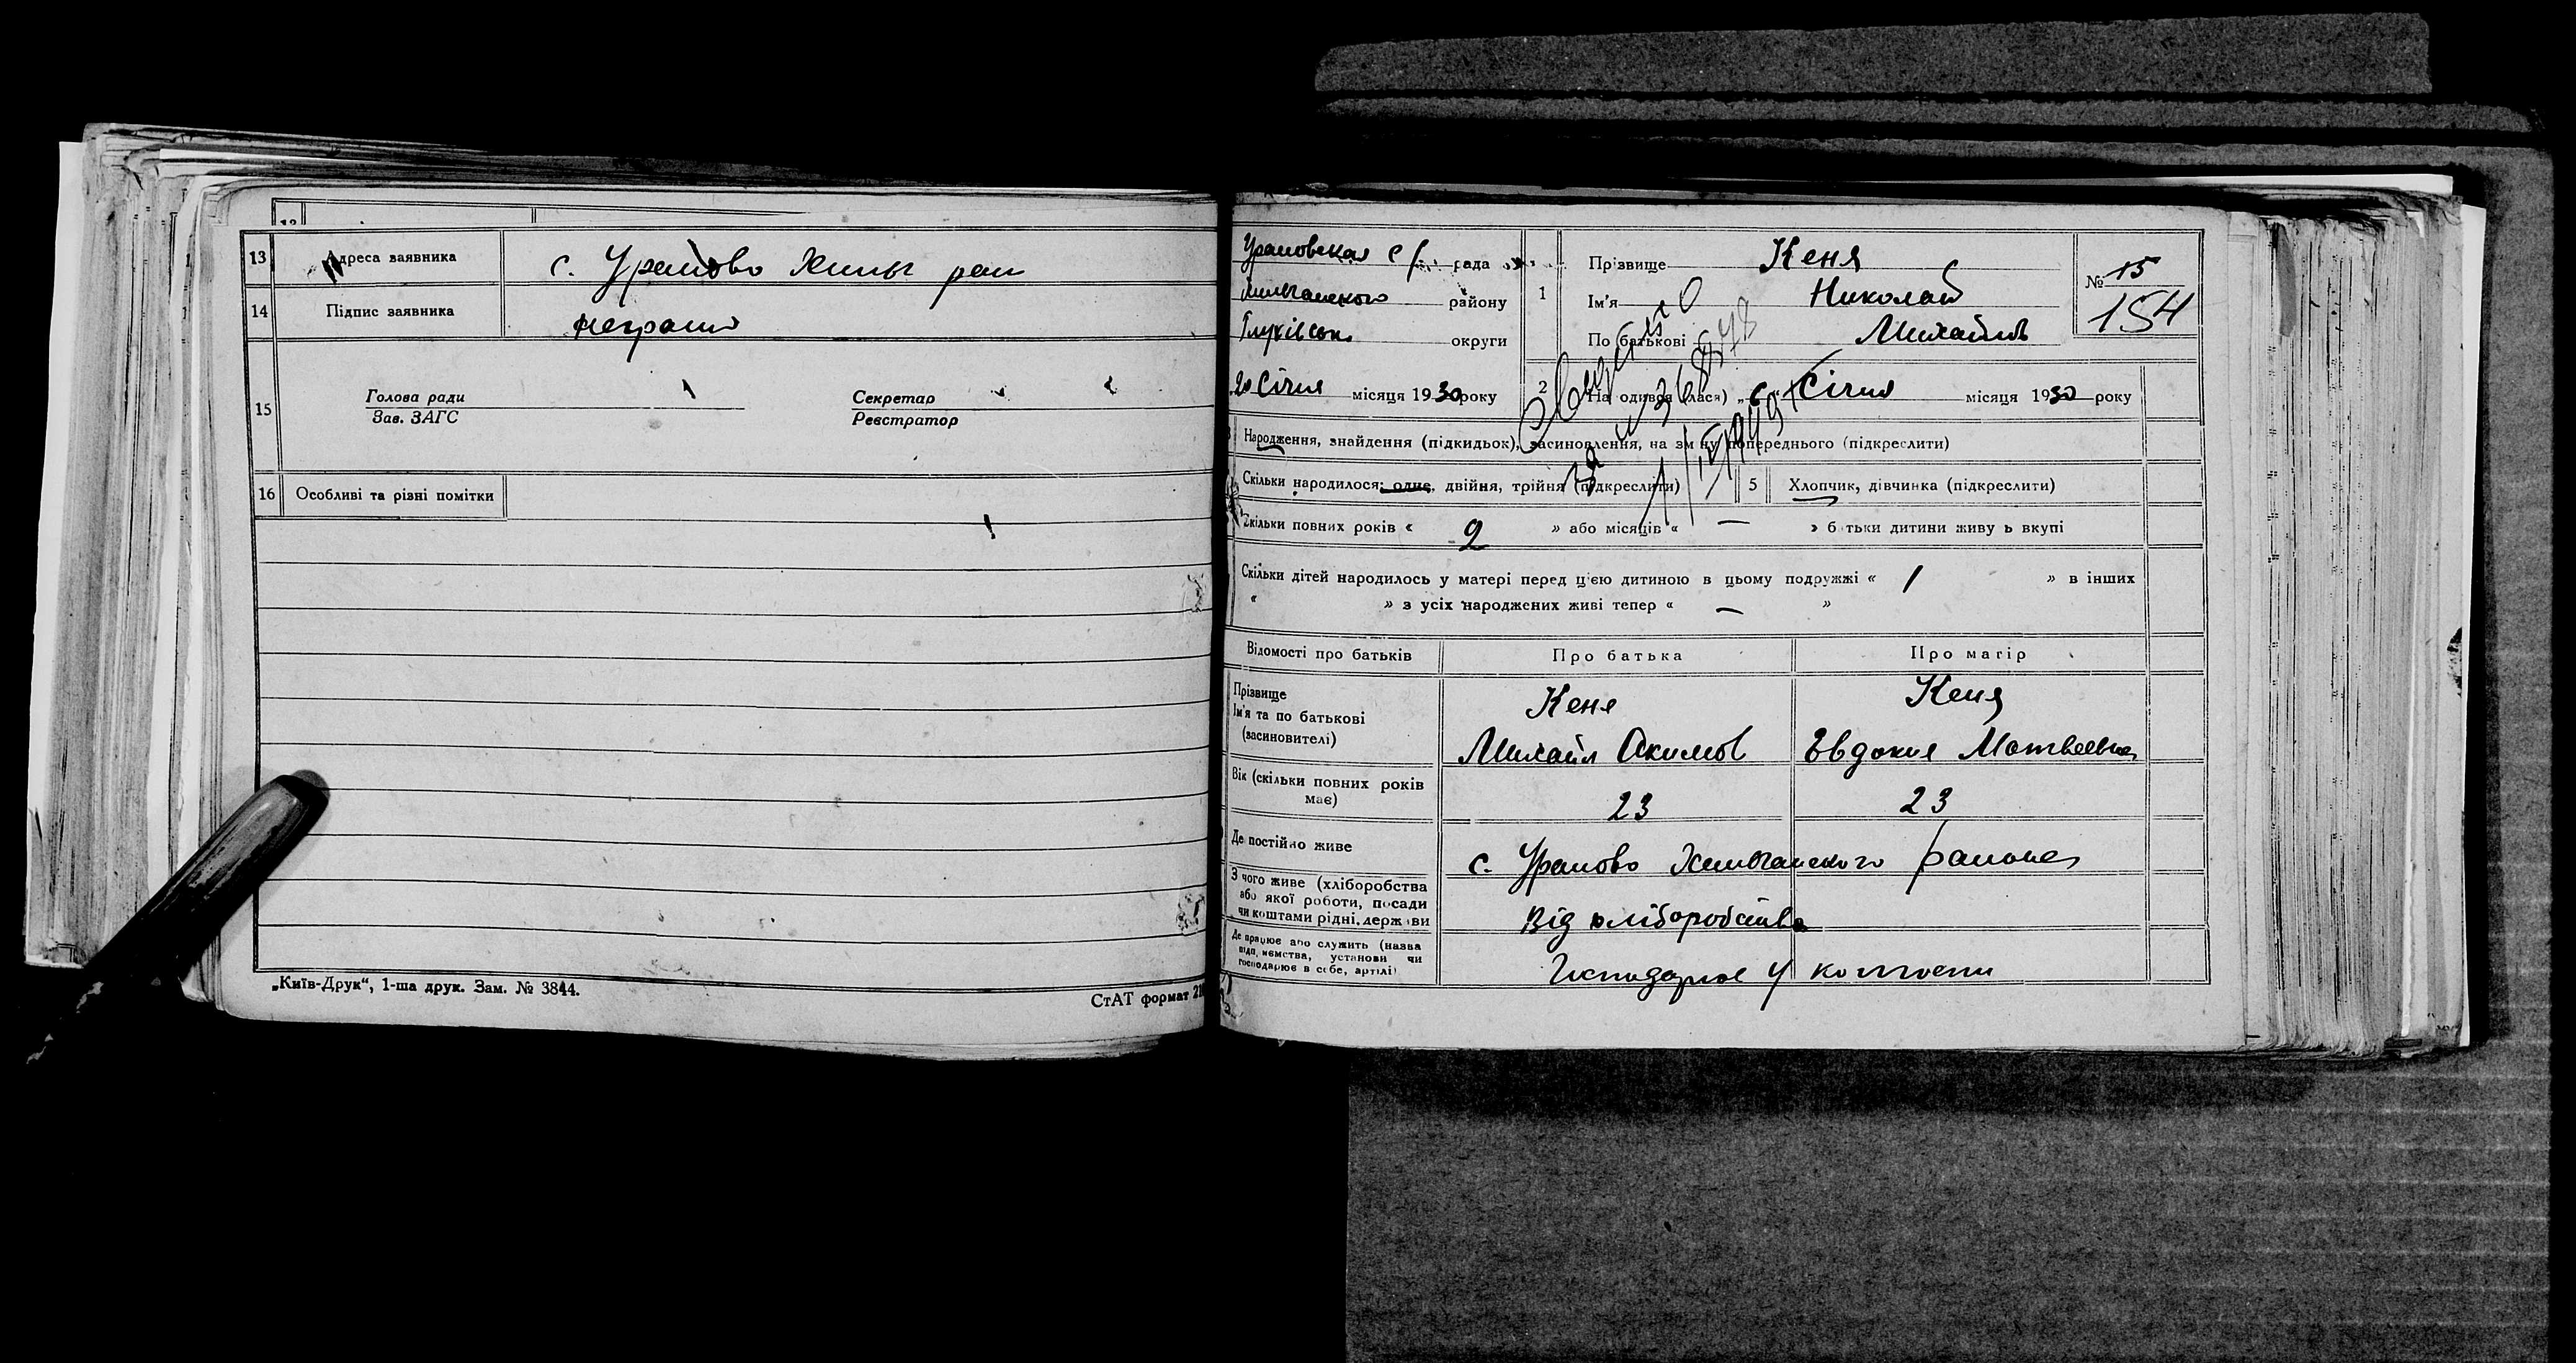 13 Адреса заявника с. Ураково Хильч рай
14 Підпис заявника неграмот
15 Голова ради Секретар
Зав. ЗАГС Реєстратор
16 Особливі та різні помітки
„Київ-Друк“, 1-ша друк. Зам. № 3844.
СтАТ формат
рада
району
Глухівськ округи
20 Січня місяця 1930 року
1 Прізвище Кеня
Ім'я Николай
По батькові Михайлов
№ 15
154
2 На одився (лася) „6“ Січня місяця 1930 року
Народження, знайдення (підкидьок), засиновлення, на зм ну попереднього (підкреслити)
Скільки народилося: одне, двійня, трійня (підкреслити) 5 Хлопчик, дівчинка (підкреслити)
Скільки повних років « 2 » або місяців « — » б тьки дитини живу ь вкупі
Скільки дітей народилось у матері перед цією дитиною в цьому подружжі « 1 » в інших
« » з усіх народжених живі тепер « — »
Відомості про батьків Про батька Про матір
Прізвище
Ім'я та по батькові
(засиновителі)
Кеня Кеня
Михайл Акимов Евдокия Матвеевна
Вік (скільки повних років має) 23 23
Де постійно живе с. Ураково района
З чого живе (хліборобства
або якої роботи, посади
чи коштами рідні, держ ви
Від хліборобства
Де працює або служить (назва
підп иємства, установи чи
господарює в себе, артілі)
Господарює у